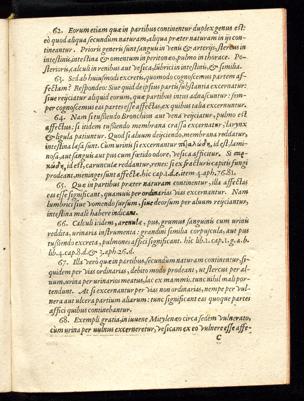 62. Eorum etiam quæ in partibus continentur duplex genus est:
eò quod aliqua secundum naturam, aliqua præter naturam in ijs con-
tineantur. Prioris generis sunt, sanguis in venis & arterijs, stercus in
intestinis, intestina & omentum in peritonæo, pulmo in thorace. Po-
sterioris, calculi in renibus aut vesica, lubrici in intestinis, & similia.
63. Sed ab huiusmodi excretis, quomodo cognoscemus partem af-
fectam? Respondeo: Siue quid de ipsius partis substantia excernatur:
siue reijciatur aliquid eorum, quæ partibus intus adnascuntur: sem-
per cognoscemus eas partes esse affectas, ex quibus talia excernuntur.
64. Nam si tussiendo Bronchium aut vena reijciatur, pulmo est
affectus: si itidem tussiendo membrana crassa excernatur, larynx
& ligula patiuntur. Quod si aluum deijciendo, membrana reddatur,
intestina læsa sunt. Cum urinis si excernantur id est, lami-
nosa, aut sanguis aut pus cum fœtido odore, vesica afficitur. Si
id est, carunculæ reddantur, renes: si ex fractura capitis fungi
prodeant, meninges sunt affectæ. hic cap. 1. & 4. aph. 76.81.
65. Quæ in partibus præter naturam continentur, illa affectas
eas esse significant, quamuis per ordinarias vias excernantur. Nam
lumbrici siue vomendo sursum, siue deorsum per aluum reijciantur,
intestina malè habere indicant.
66. Calculi itidem, arenulæ, pus, grumus sanguinis cum urini
reddita, urinaria instrumenta: grandinis similia corpuscula, aut pus
tussiendo excreta, pulmones affici significant. hic lib. 1. cap. 1. 4. b.
lib. 4. cap. 8. & 3. aph. 26.
67. Illa verò quæ in partibus, secundum naturam continentur, si-
quidem per vias ordinarias, debito modo prodeant, ut stercus per al-
uum, urina per urinarios meatus, lac ex mammis, tunc nihil mali por-
tendunt. At si excernantur per vias non ordinarias, nempe per vul-
nera aut ulcera partium aliarum: tunc significant eas quoque partes
affici quibus continebantur.
68. Exempli gratia, in iuuene Mitylenæo circa sedem vulnerato,
cum urina per vulnus excerneretur, vesicam ex eo vulnere esse affe-
C